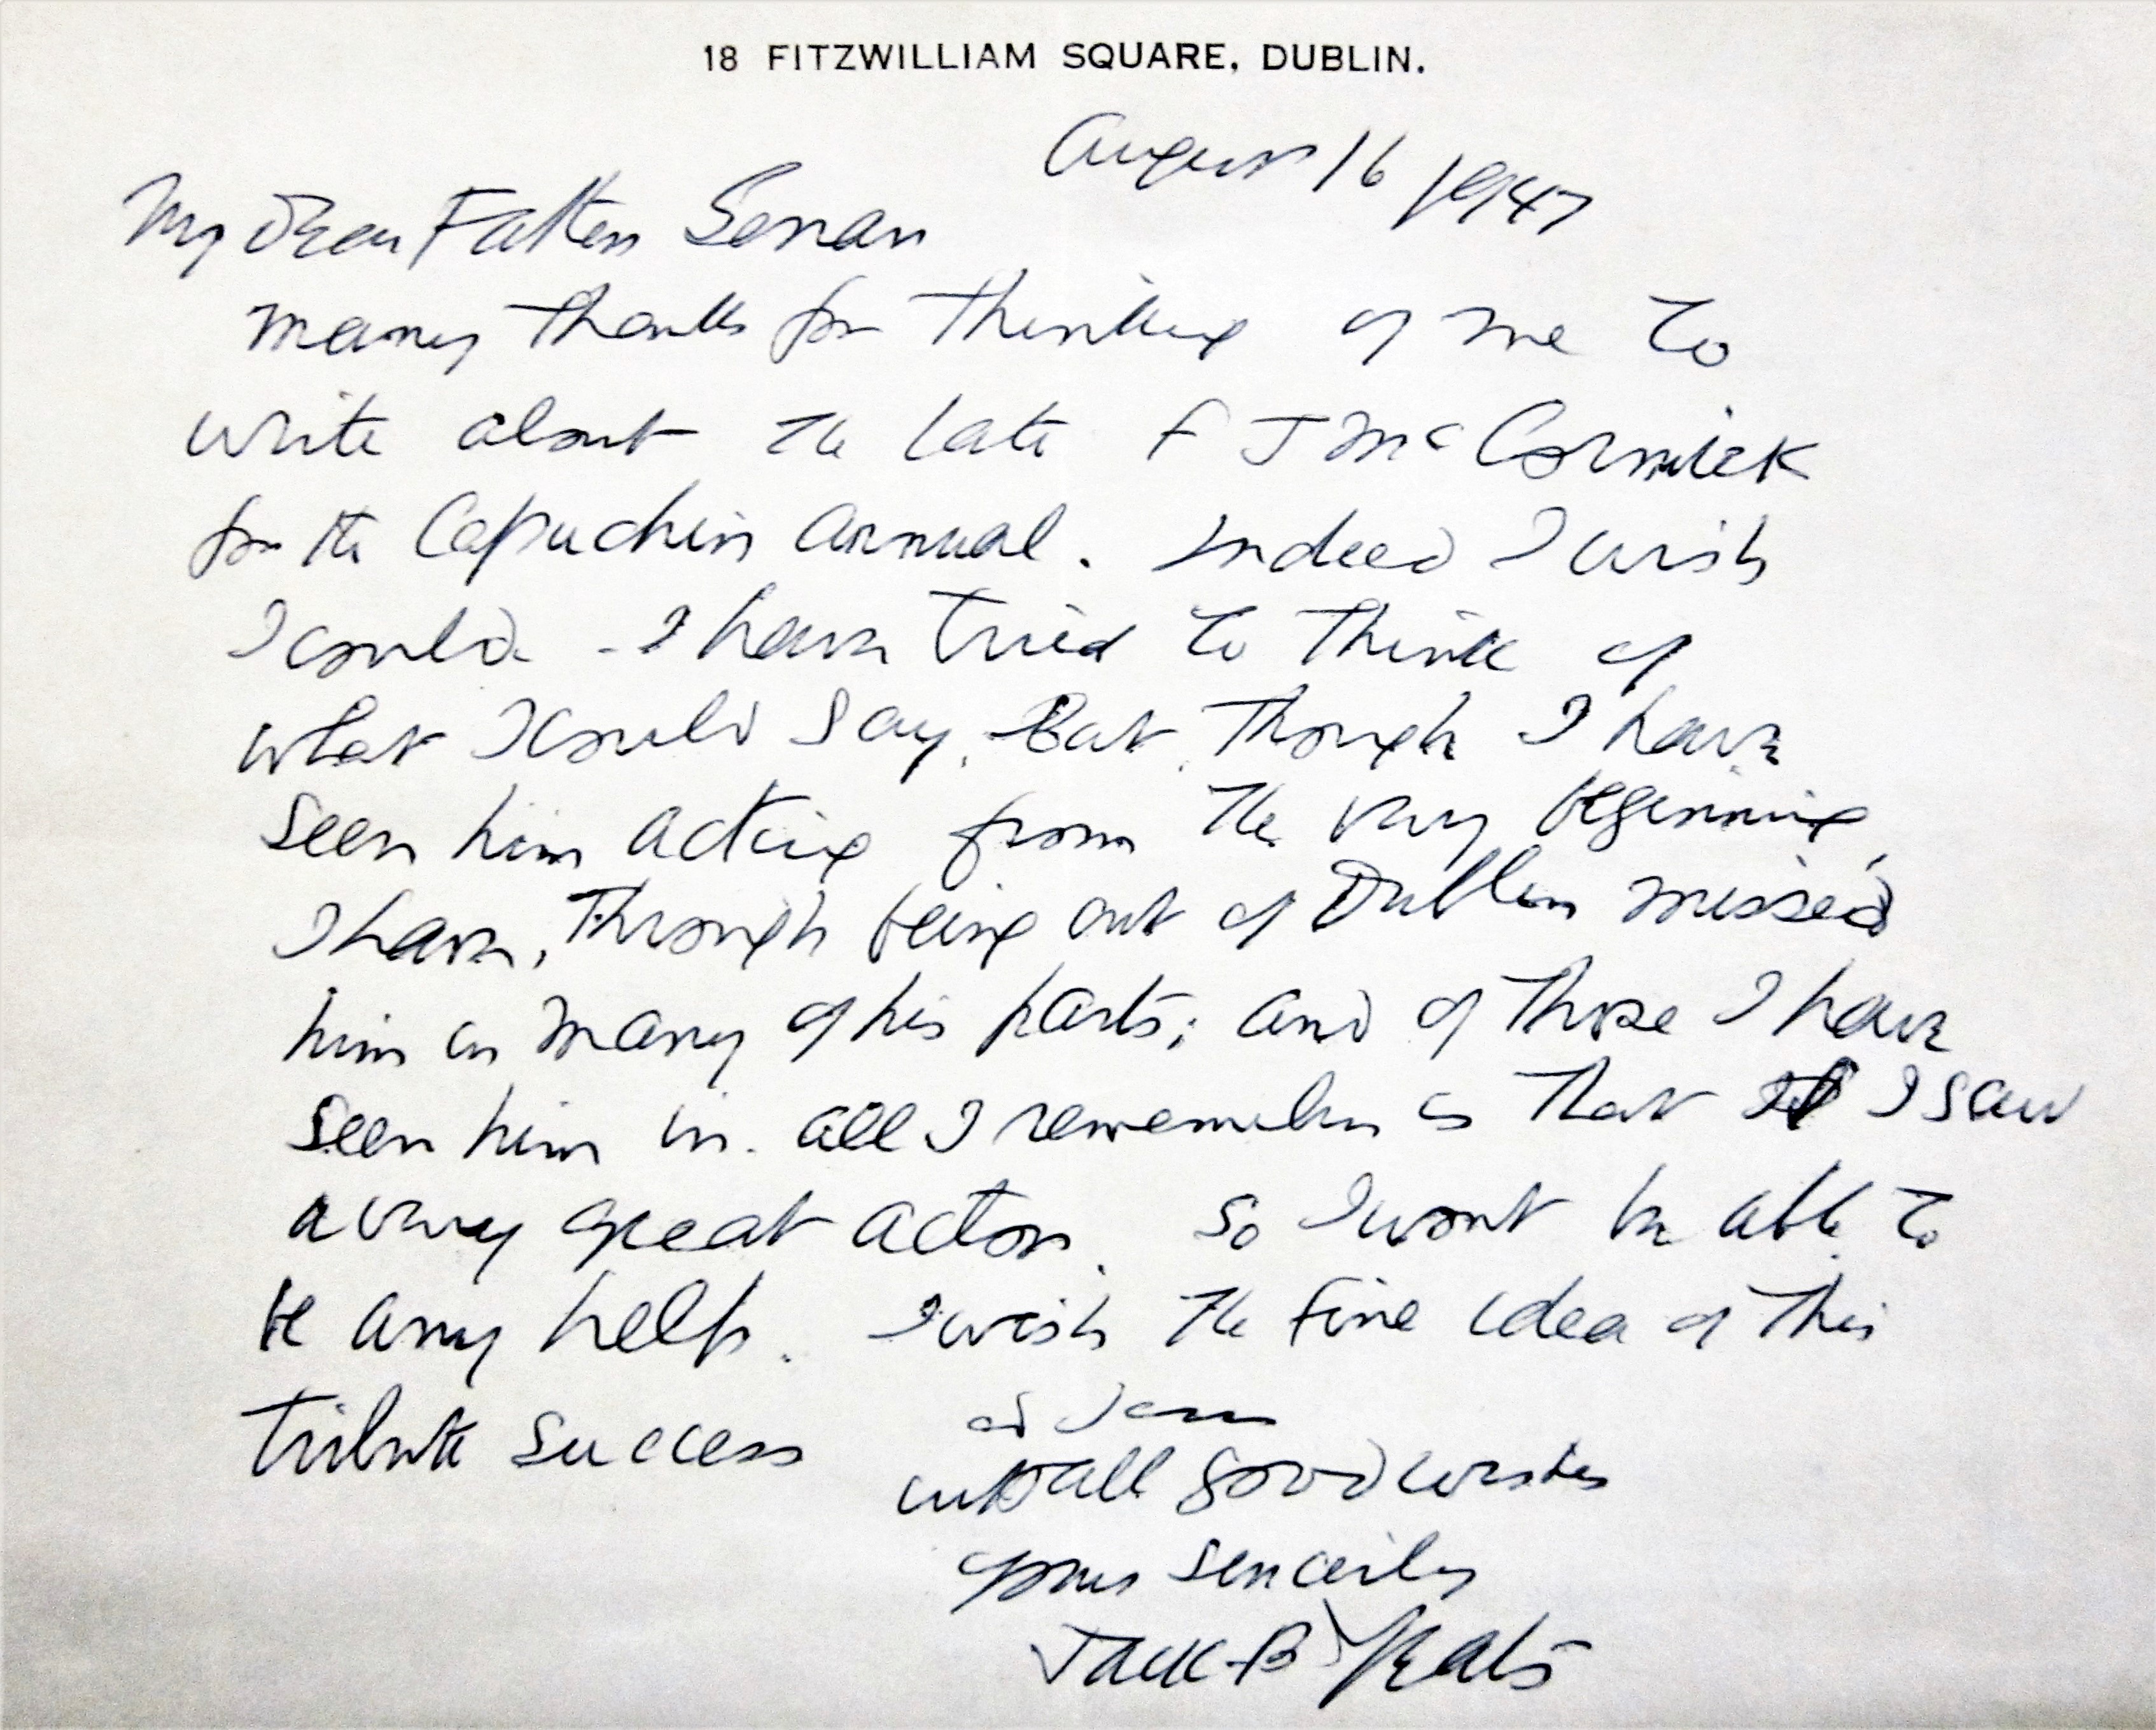 18 FITZWILLIAM SQUARE, DUBLIN.
August 16 1947
My Dear Father Senan
many thanks for thinking of me to
write about the late F J McCormick
for the Capuchin Annual. Indeed I wish
I could - I have tried to think of
what I could say. But, though I have
seen him acting from the very beginning,
I have, through being out of Dublin missed
him in many of his parts; and of those I have
seen him in. all I remember is that I saw
a very great actor. So I wont be able to
be any help. I wish the fine idea of this
tribute success
with all good wishes
yours sincerely
Jack B Yeats